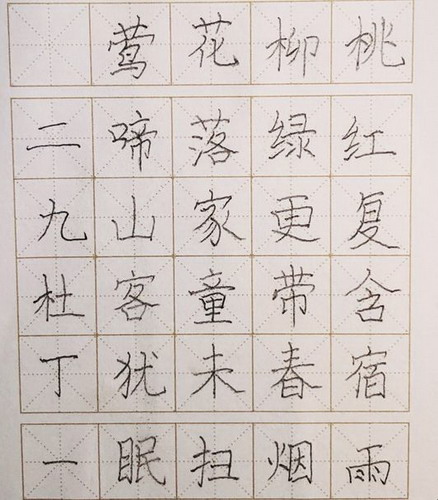 桃红复含宿雨
柳绿更带春烟
花落家童未扫
莺啼山客犹眠
二九杜丁一